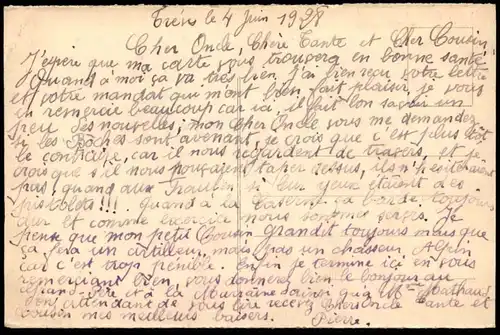 Trèves le 4 Juin 1928
Cher Oncle, Chère Tante et Cher Cousin,
J'espère que ma carte vous trouvera en bonne santé
Quand à moi ça va très bien. J'ai bien reçu votre lettre
et votre mandat qui m'ont bien fait plaisir, je vous
en remercie beaucoup car ici il fait bon savoir un
peu des nouvelles; mon Cher Oncle vous me demandez
si les Boches sont avenant, je crois que c'est plus tôt
le contraire, car il nous regardent de travers, et je
crois que s'il nous pouvaient taper dessus, ils n'hésiteraient
pas, quand aux si leur yeux étaient des
pistolets!!! Quand à la Caserne ça barde toujours
dur et comme exercice nous sommes servis. Je
pense que mon petit Cousin grandit toujours mais que
ça fera un artilleur, mais pas un chasseur Alpin
car c'est trop pénible. Enfin je termine ici en vous
remerciant bien, vous donnerez bien le bonjour au
Grand Père et à la ainsi qu'à Mme Mathaud
dont attendant de vous lire recevez Cher Oncle Tante et
Cousin mes meilleurs baisers. Pierre.